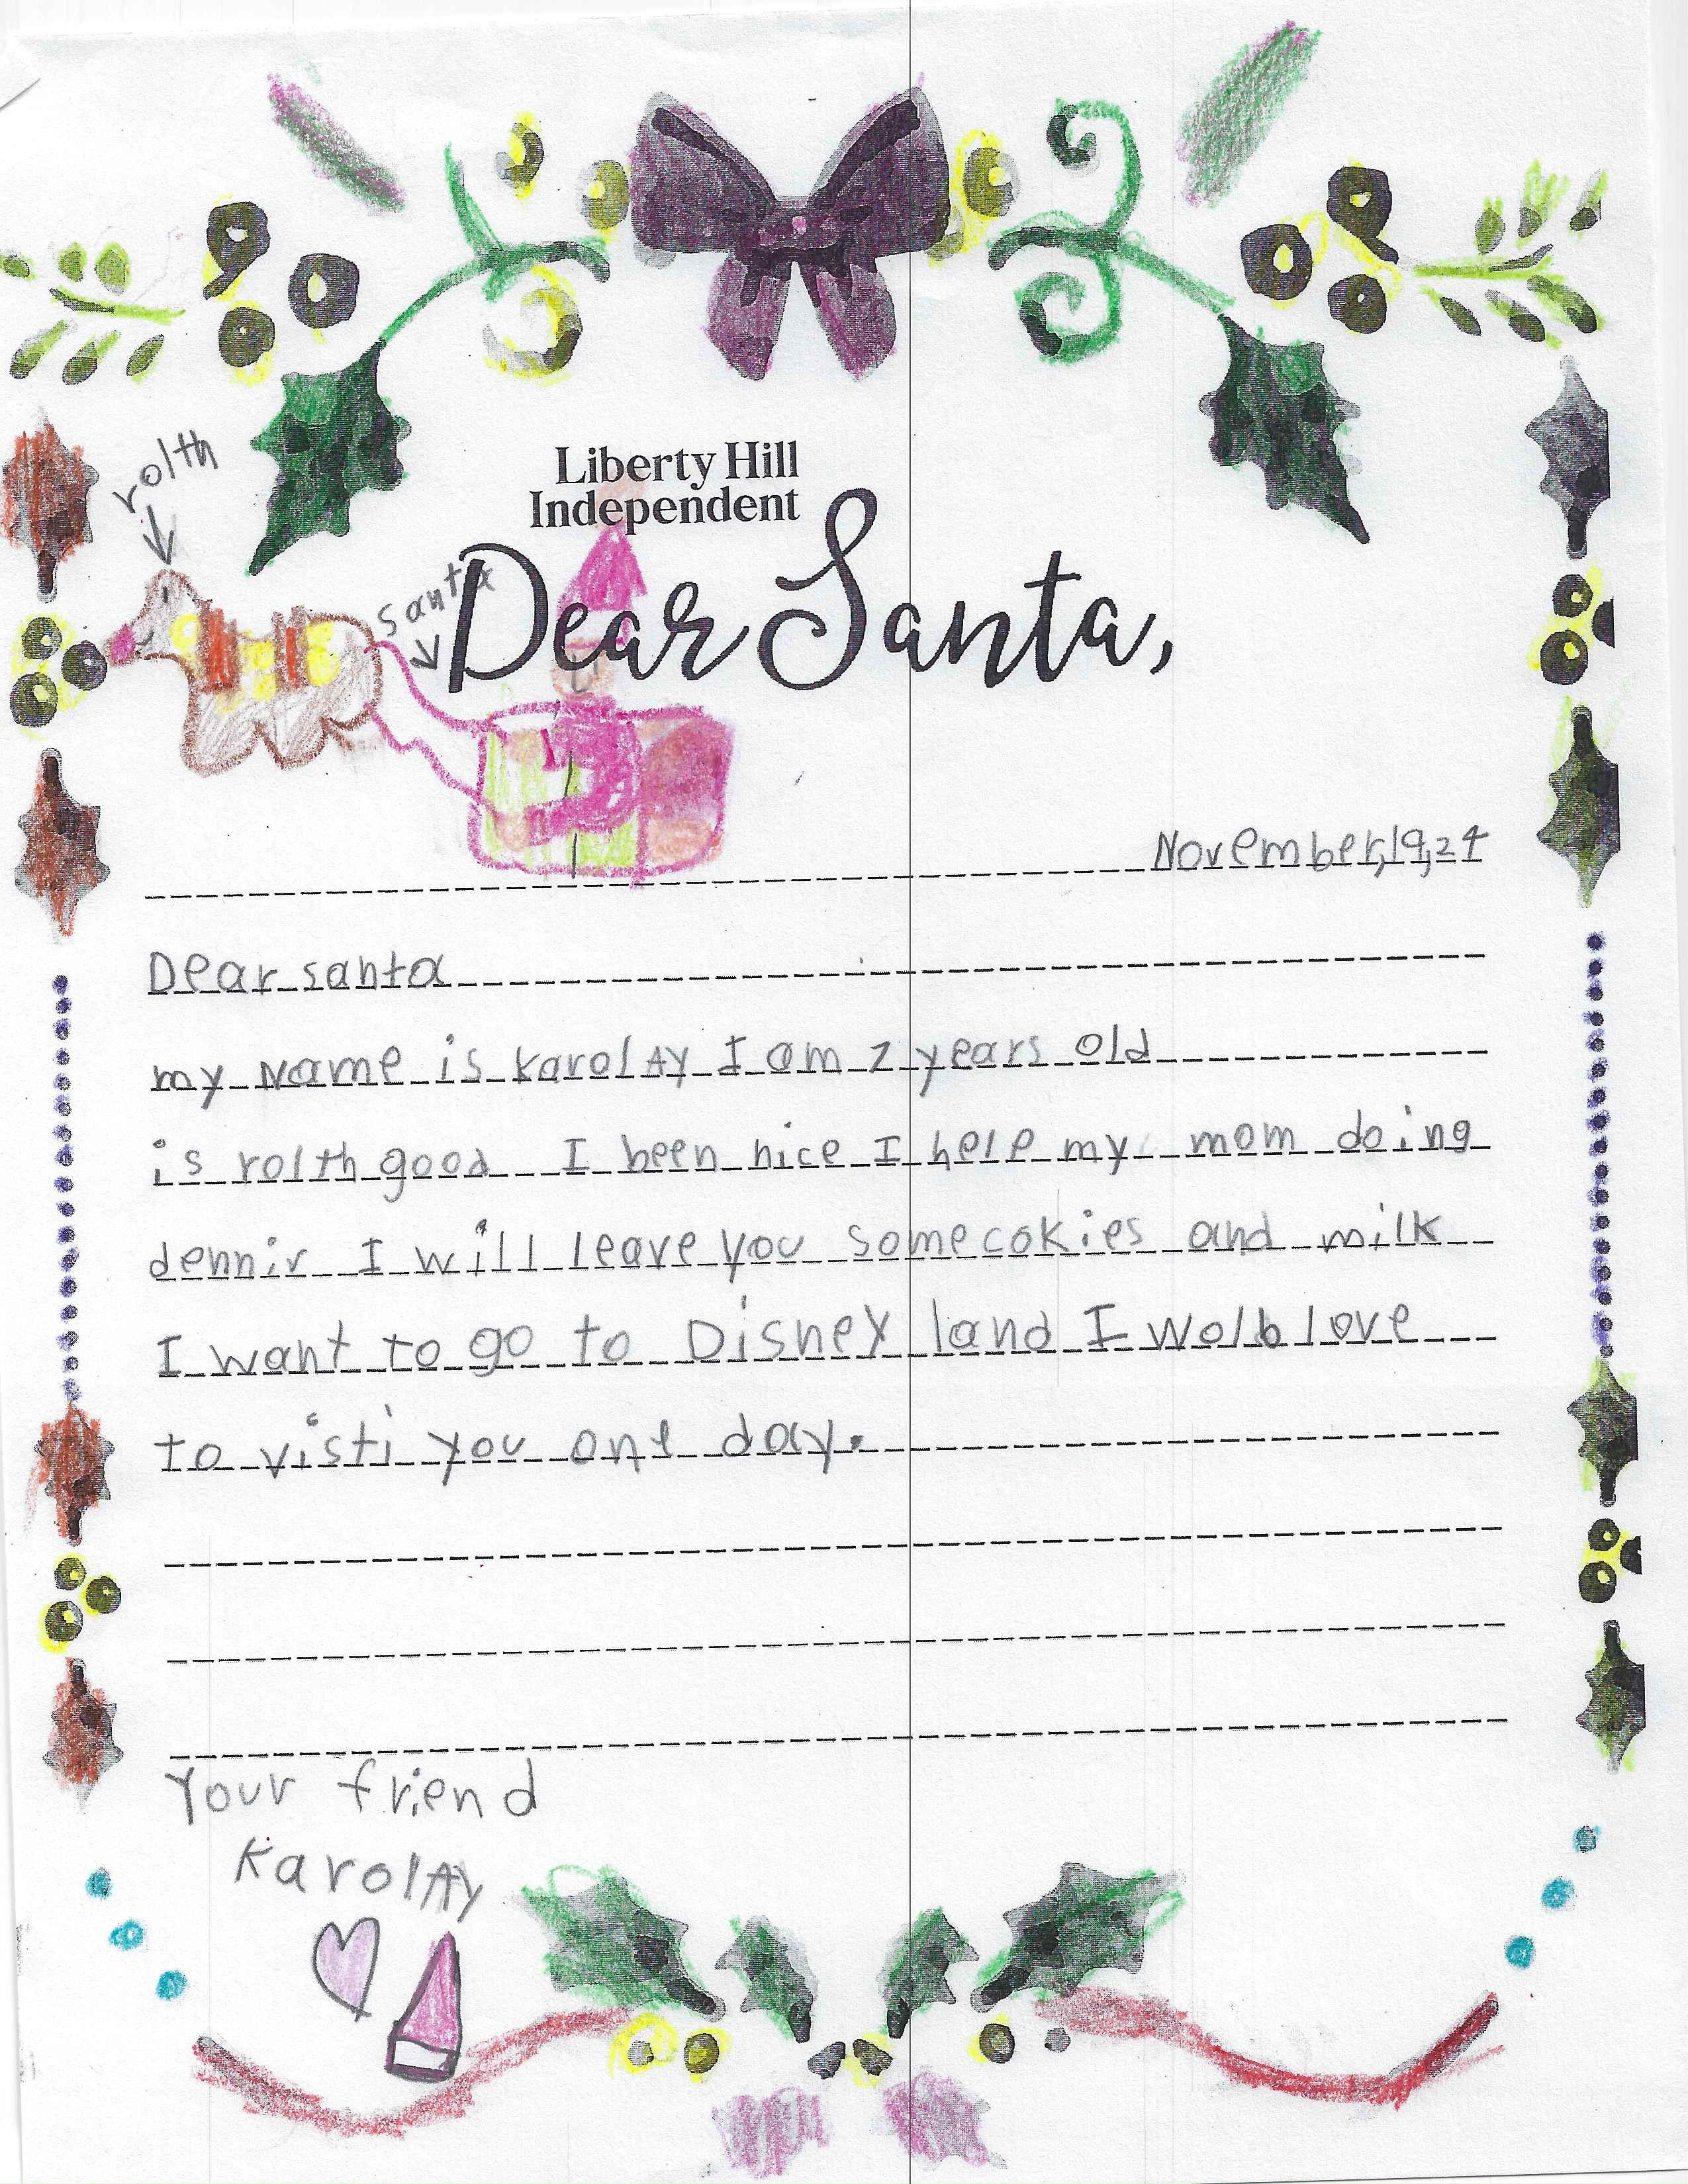 Liberty Hill
Independent
Dear Santa,
rolth
santa
November,19,24
Dear santa
my name is KarolAy I am 7 years old
is rolth good I been nice I help my mom doing
dennir I will leave you some cokies and milk
I want to go to Disney land I wolb love
to visti you one day.
Your friend
KarolAy